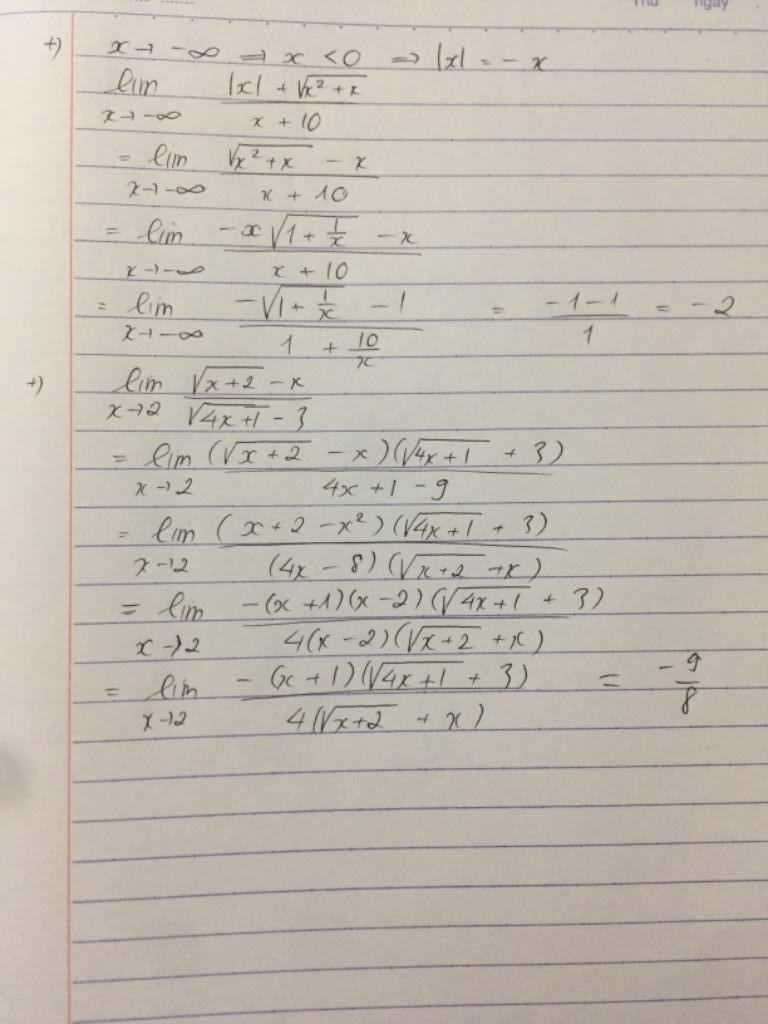 Thứ ngày
+) x → -∞ ⇒ x < 0 ⇒ |x| = - x
lim_{x→-∞} (|x| + √(x² + x)) / (x + 10)
= lim_{x→-∞} (√(x² + x) - x) / (x + 10)
= lim_{x→-∞} (-x√(1 + 1/x) - x) / (x + 10)
= lim_{x→-∞} (-√(1 + 1/x) - 1) / (1 + 10/x) = (-1-1)/1 = -2
+) lim_{x→2} (√(x+2) - x) / (√(4x+1) - 3)
= lim_{x→2} (√(x+2) - x)(√(4x+1) + 3) / (4x + 1 - 9)
= lim_{x→2} (x + 2 - x²)(√(4x+1) + 3) / ((4x - 8)(√(x+2) + x))
= lim_{x→2} -(x+1)(x-2)(√(4x+1) + 3) / (4(x-2)(√(x+2) + x))
= lim_{x→2} -(x+1)(√(4x+1) + 3) / (4(√(x+2) + x)) = -9/8